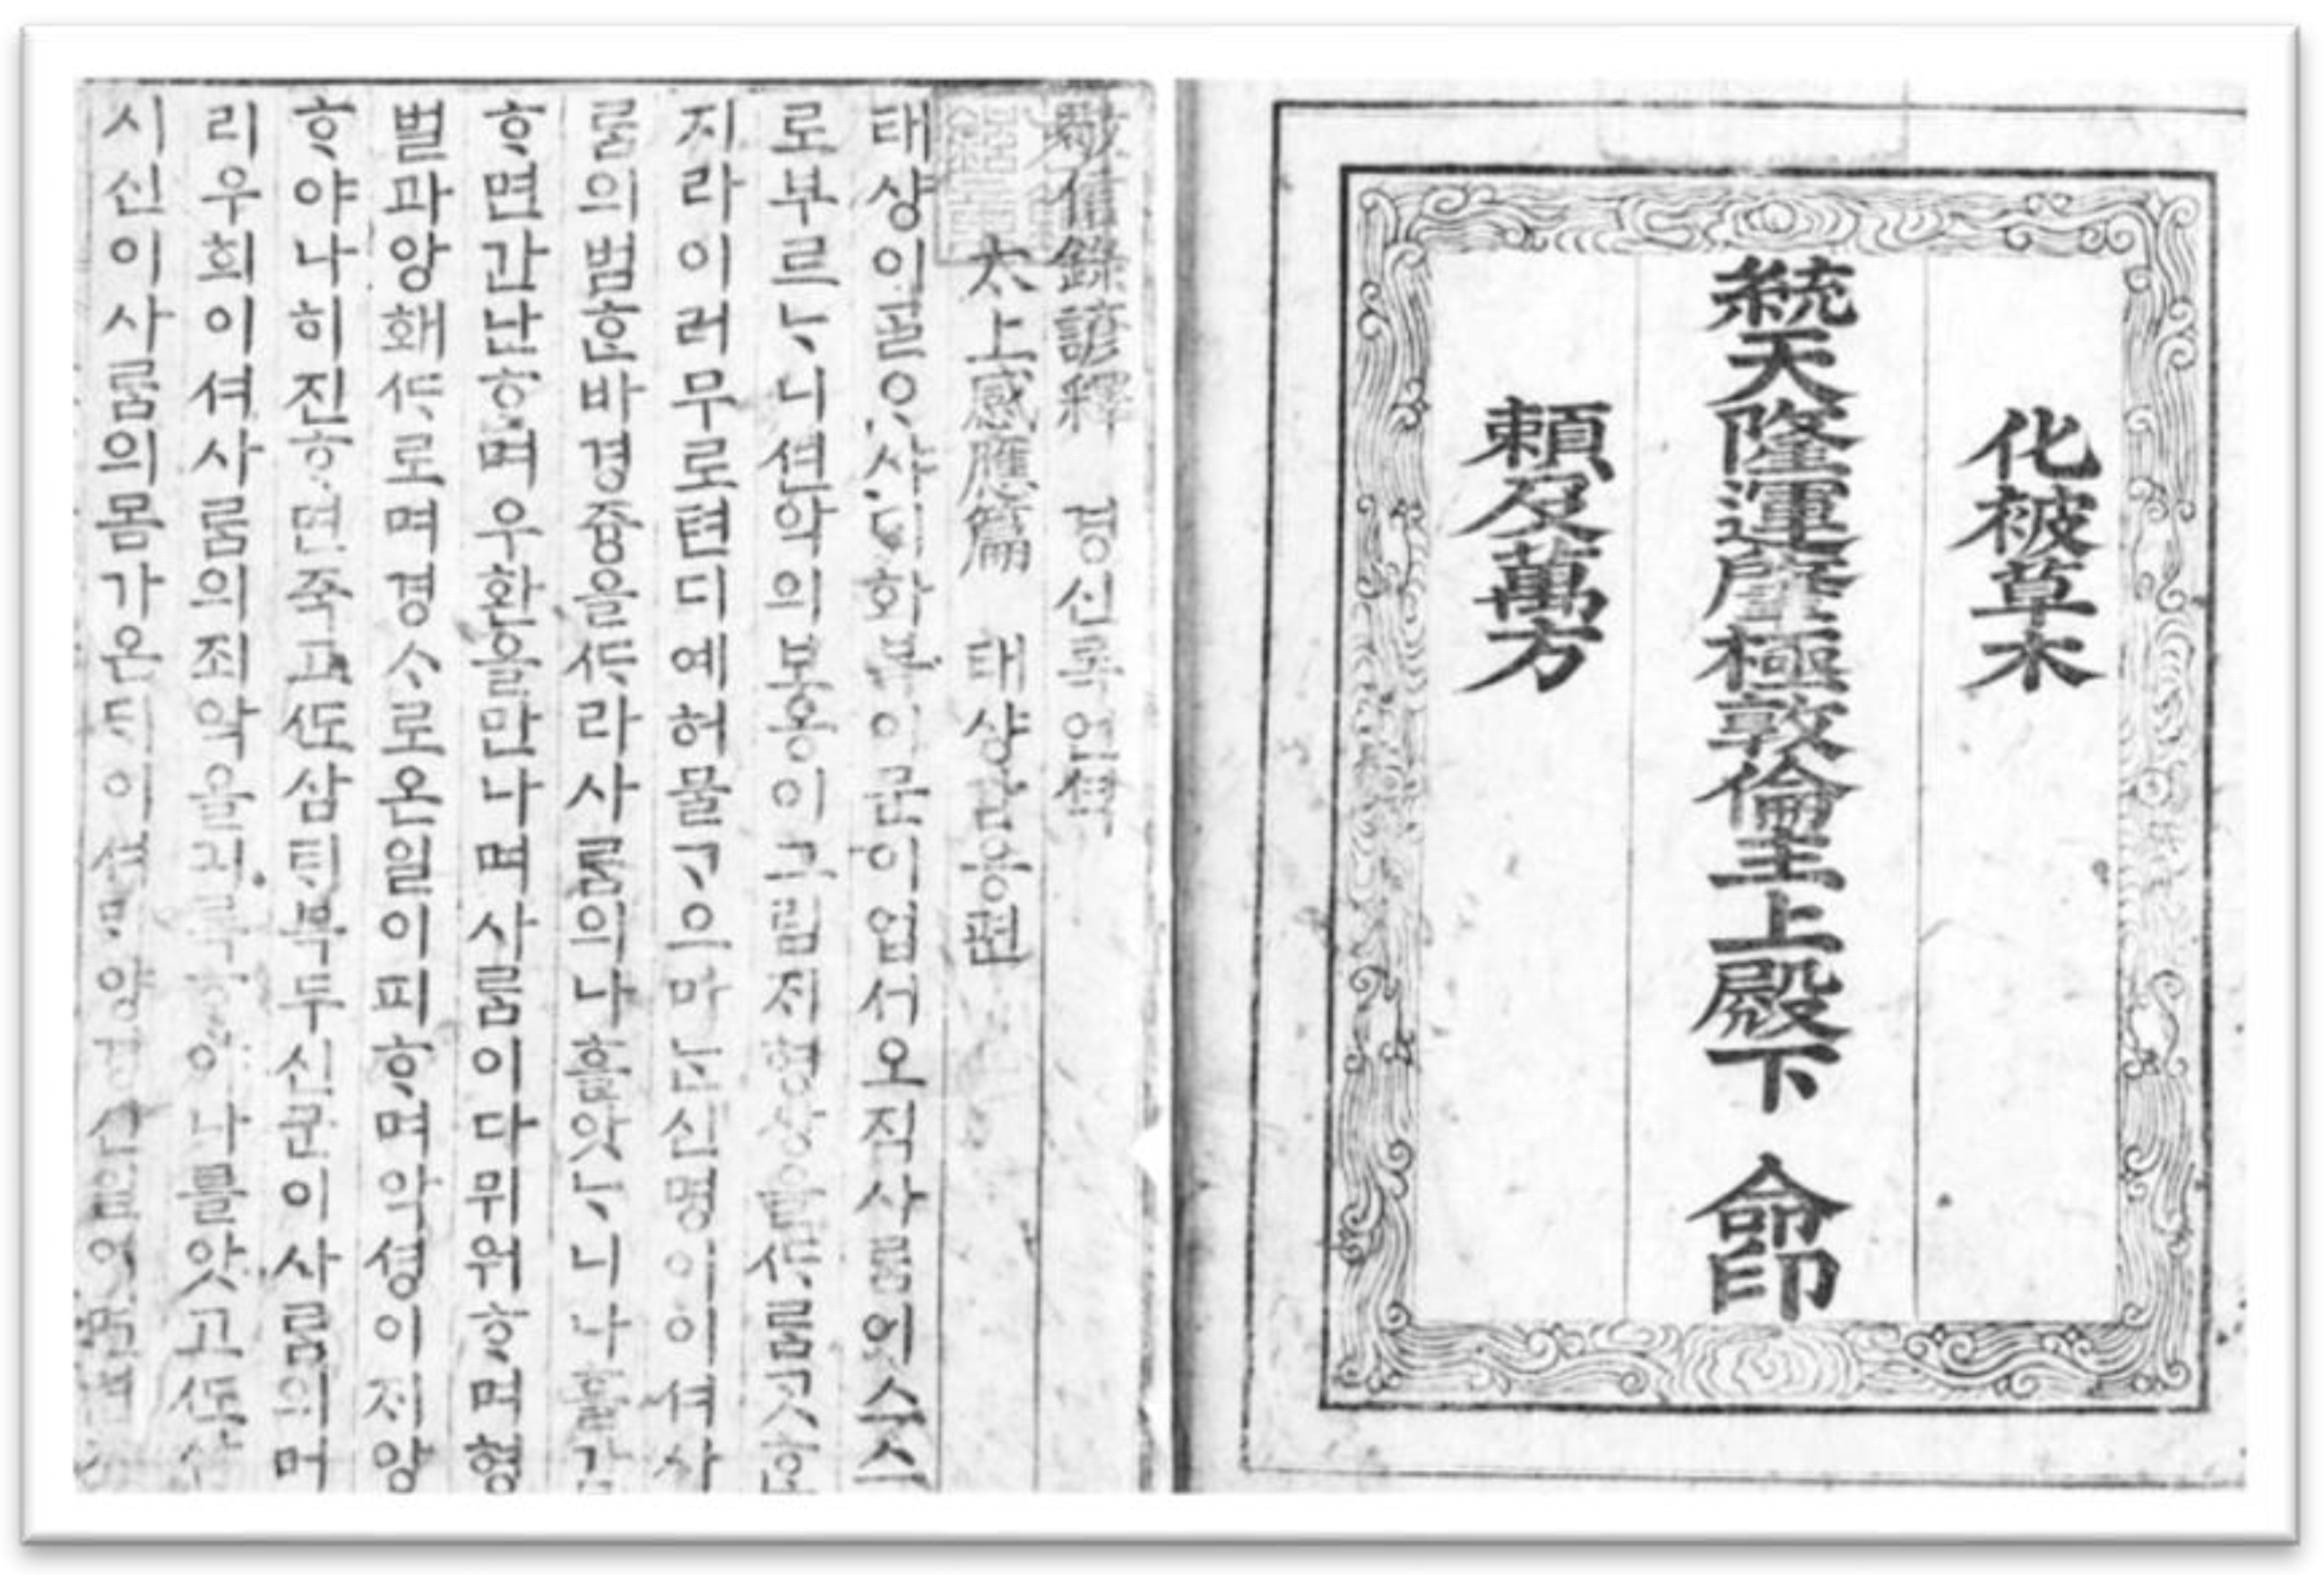 化被草木
統天隆運肇極敦倫主上殿下 命印
賴及萬方
敬信錄諺釋 경신록언셕
太上感應篇 태샹감응편
태샹이ᄀᆞᆯᄋᆞ샤ᄃᆡ화복이문이업서오직사ᄅᆞᆷ이스스
로부르ᄂᆞ니션악의보응이그림ᄌᆡ형샹을ᄯᆞ롬ᄀᆞᆺᄒᆞᆫ
지라이러무로텬디예허물ᄀᆞ으마ᄂᆞᆫ신명이이셔사
ᄅᆞᆷ의범ᄒᆞᆫ바경즁을ᄯᆞ라사ᄅᆞᆷ의나흘앗ᄂᆞ니나흘감
ᄒᆞ면간난ᄒᆞ며우환을만나며사ᄅᆞᆷ이다뮈워ᄒᆞ며형
벌과앙홰ᄯᆞ로며경ᄉᆞ로온일이피ᄒᆞ며악셩이ᄌᆡ앙
ᄒᆞ야나히진ᄒᆞ면죽고ᄯᅩ삼ᄐᆡ북두신군이사ᄅᆞᆷ의머
리우희이셔사ᄅᆞᆷ의죄악을긔록ᄒᆞ야나를앗고ᄯᅩ삼
시신이사ᄅᆞᆷ의몸가온ᄃᆡ이셔ᄆᆡ양경신일